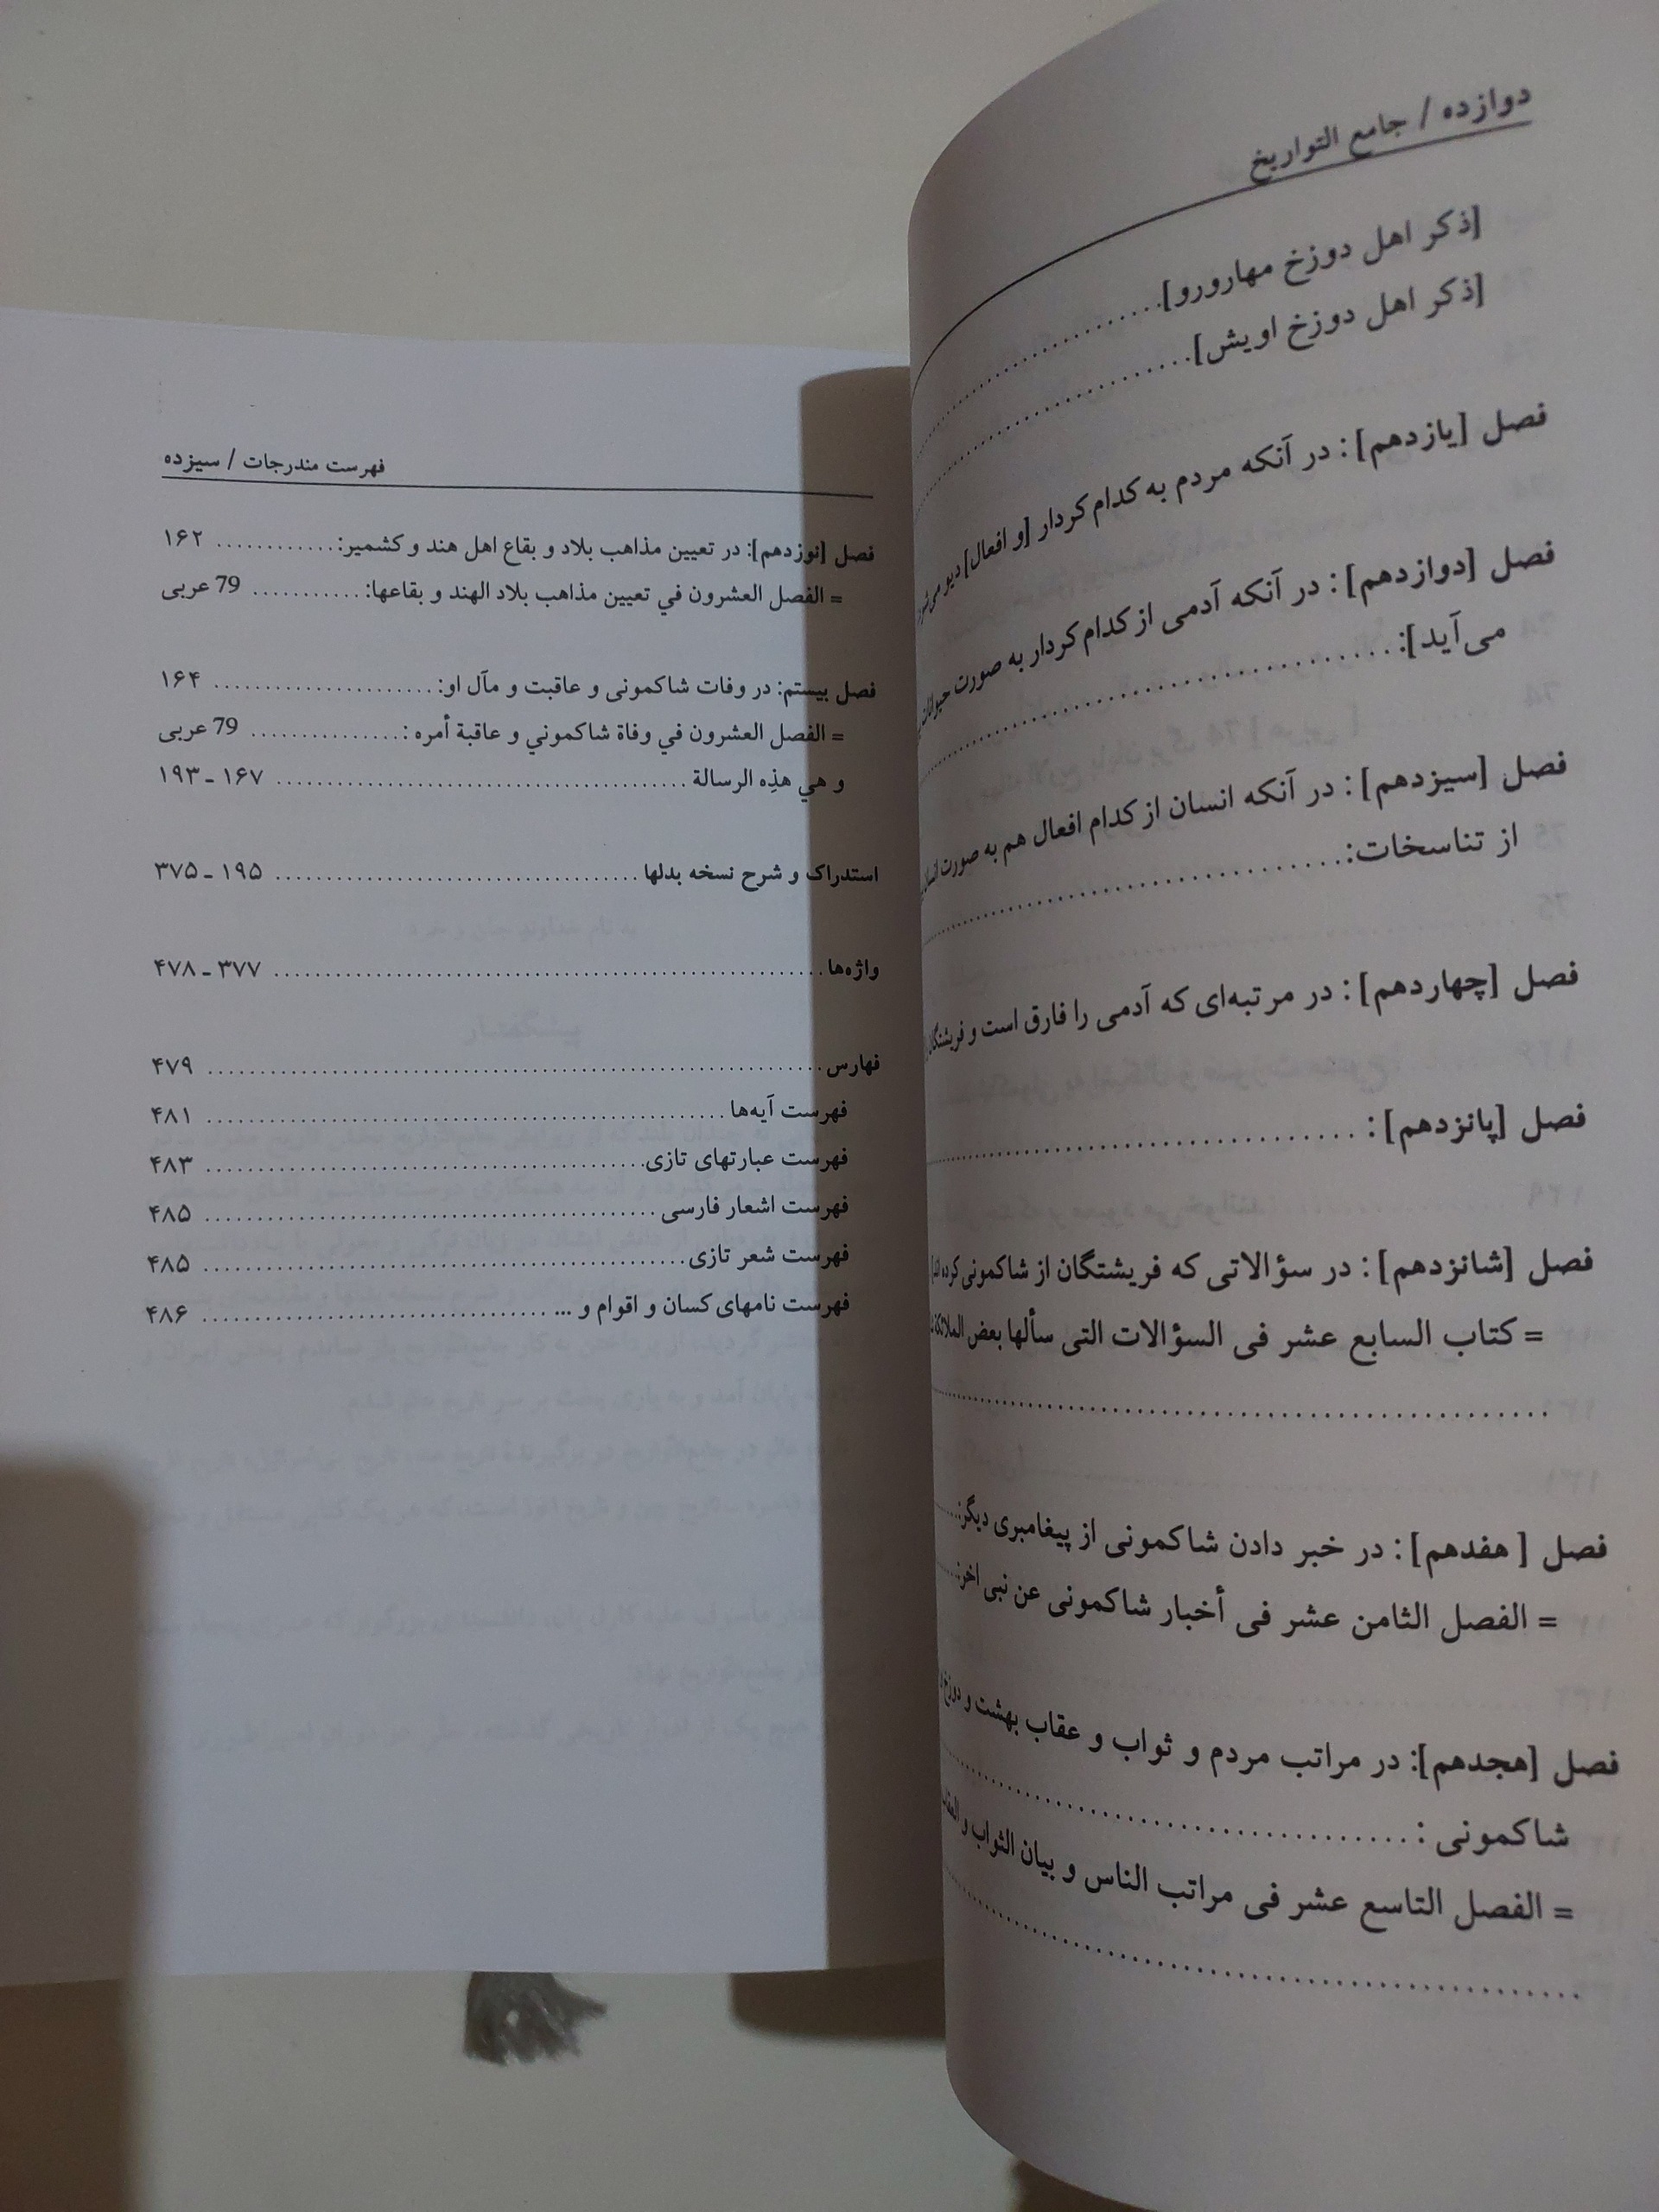 دوازده / جامع التواریخ
[ذکر اهل دوزخ مهارورو] ..........
[ذکر اهل دوزخ اویش] ..........
فصل [یازدهم]: در آنکه مردم به کدام کردار [و افعال] دیو
فصل [دوازدهم]: در آنکه آدمی از کدام کردار به صورت حیوانات
می‌آید]: ..........
فصل [سیزدهم]: در آنکه انسان از کدام افعال هم به صورت
از تناسخات: ..........
فصل [چهاردهم]: در مرتبه‌ای که آدمی را فارق است و فریشتگان
فصل [پانزدهم]: ..........
فصل [شانزدهم]: در سؤالاتی که فریشتگان از شاکمونی کرده‌اند
= کتاب السابع عشر فی السؤالات التی سألها بعض الملائکة
..........
فصل [هفدهم]: در خبر دادن شاکمونی از پیغامبری دیگر: ..........
= الفصل الثامن عشر فی أخبار شاکمونی عن نبی اخر: ..........
فصل [هجدهم]: در مراتب مردم و ثواب و عقاب بهشت و دوزخ
شاکمونی: ..........
= الفصل التاسع عشر فی مراتب الناس و بیان الثواب و
..........
فهرست مندرجات / سیزده
فصل [نوزدهم]: در تعیین مذاهب بلاد و بقاع اهل هند و کشمیر: .......... ۱۶۲
= الفصل العشرون في تعیین مذاهب بلاد الهند و بقاعها: .......... 79 عربی
فصل بیستم: در وفات شاکمونی و عاقبت و مآل او: .......... ۱۶۴
= الفصل العشرون في وفاة شاکموني و عاقبة أمره: .......... 79 عربی
و هي هذِه الرسالة .......... ۱۶۷ ـ ۱۹۳
استدراک و شرح نسخه بدلها .......... ۱۹۵ ـ ۳۷۵
واژه‌ها .......... ۳۷۷ ـ ۴۷۸
فهارس .......... ۴۷۹
فهرست آیه‌ها .......... ۴۸۱
فهرست عبارتهای تازی .......... ۴۸۳
فهرست اشعار فارسی .......... ۴۸۵
فهرست شعر تازی .......... ۴۸۵
فهرست نامهای کسان و اقوام و ... .......... ۴۸۶